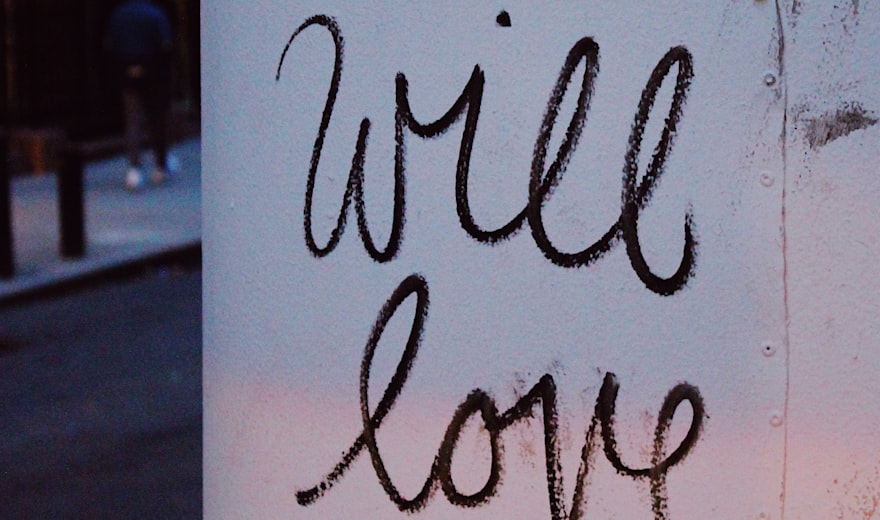 Will
love